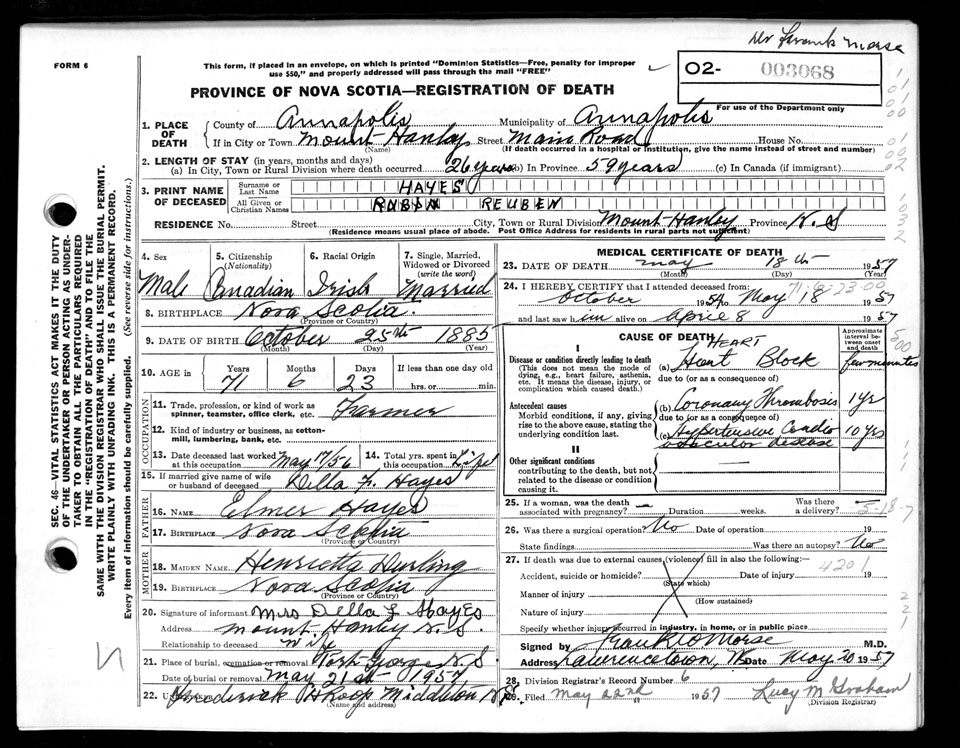 Dr Frank Morse
FORM 6
This form, if placed in an envelope, on which is printed "Dominion Statistics—Free, penalty for improper
use $50," and properly addressed will pass through the mail "FREE"
O2- 003068
For use of the Department only
PROVINCE OF NOVA SCOTIA—REGISTRATION OF DEATH
1. PLACE OF DEATH
County of Annapolis Municipality of Annapolis
If in City or Town Mount Hanley Street Main Road House No.
(Name) (If death occurred in a hospital or institution, give the name instead of street and number)
2. LENGTH OF STAY (in years, months and days)
(a) In City, Town or Rural Division where death occurred 26 years (b) In Province 59 years (c) In Canada (if immigrant)
3. PRINT NAME OF DECEASED
Surname or Last Name HAYES
All Given or Christian Names ROBIN REUBEN
RESIDENCE No. Street City, Town or Rural Division Mount Hanley Province N.S
(Residence means usual place of abode. Post Office Address for residents in rural parts not sufficient)
4. Sex Male
5. Citizenship (Nationality) Canadian
6. Racial Origin Irish
7. Single, Married, Widowed or Divorced (write the word) Married
8. BIRTHPLACE Nova Scotia
(Province or Country)
9. DATE OF BIRTH October 25th 1885
(Month) (Day) (Year)
10. AGE in Years Months Days If less than one day old
71 6 23 hrs. or min.
OCCUPATION
11. Trade, profession, or kind of work as spinner, teamster, office clerk, etc. Farmer
12. Kind of industry or business, as cotton-mill, lumbering, bank, etc.
13. Date deceased last worked at this occupation May 17/56
14. Total yrs. spent in this occupation Life
15. If married give name of wife or husband of deceased Della F. Hayes
FATHER
16. NAME Elmer Hayes
17. BIRTHPLACE Nova Scotia
(Province or Country)
MOTHER
18. MAIDEN NAME Henrietta Durling
19. BIRTHPLACE Nova Scotia
(Province or Country)
20. Signature of informant Mrs Della F Hayes
Address Mount Hanley N.S.
Relationship to deceased Wife
21. Place of burial, cremation or removal Port George N.S
Date of burial or removal May 21st 1957
22. Undertaker Frederick H Roop Middleton N.S.
(Name and address)
MEDICAL CERTIFICATE OF DEATH
23. DATE OF DEATH May 18th 1957
(Month) (Day) (Year)
24. I HEREBY CERTIFY that I attended deceased from:
71-6-23-00
October 1954 to May 18 1957
and last saw him alive on April 8 1957
CAUSE OF DEATH
Approximate interval between onset and death
I
HEART
Disease or condition directly leading to death
(This does not mean the mode of dying, e.g., heart failure, asthenia, etc. It means the disease, injury, or complication which caused death.)
(a) Heart Block few minutes
due to (or as a consequence of)
Antecedent causes
Morbid conditions, if any, giving rise to the above cause, stating the underlying condition last.
(b) Coronary Thrombosis 1 yr
due to (or as a consequence of)
(c) Hypertensive Cardio vascular disease 10 yrs
II
Other significant conditions
contributing to the death, but not related to the disease or condition causing it.
25. If a woman, was the death associated with pregnancy? Duration weeks. Was there a delivery?
5-18-7
26. Was there a surgical operation? No Date of operation 19
State findings Was there an autopsy? No
27. If death was due to external causes (violence) fill in also the following:—
4201
Accident, suicide or homicide? Date of injury 19
(State which)
Manner of injury
(How sustained)
Nature of injury
Specify whether injury occurred in industry, in home, or in public place
Signed by Frank R Morse M.D.
Address Lawrencetown, NS Date May 20 1957
28. Division Registrar's Record Number 6
29. Filed May 22nd 1957 Lucy M Graham
(Division Registrar)
SEC. 46—VITAL STATISTICS ACT MAKES IT THE DUTY
OF THE UNDERTAKER OR PERSON ACTING AS UNDER-
TAKER TO OBTAIN ALL THE PARTICULARS REQUIRED
IN THE "REGISTRATION OF DEATH" AND TO FILE THE
SAME WITH THE DIVISION REGISTRAR WHO SHALL ISSUE THE BURIAL PERMIT.
WRITE PLAINLY WITH UNFADING INK. THIS IS A PERMANENT RECORD.
Every item of information should be carefully supplied. (See reverse side for instructions.)